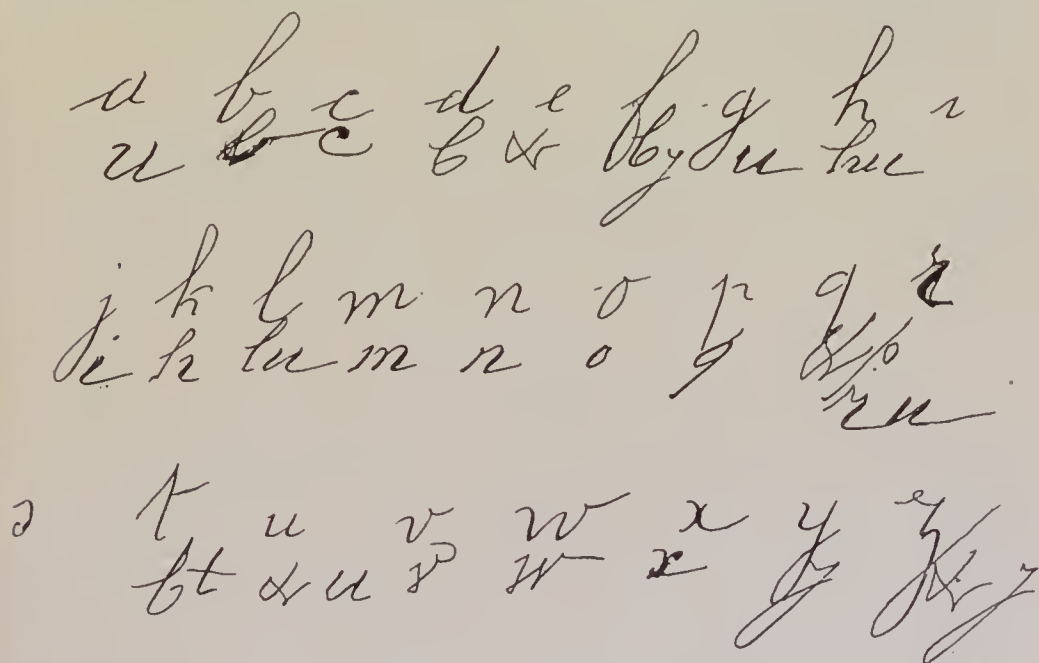 a b c d e f g h i
u b c b & by u hu
j k l m n o p q r
i h lu m n o p & p
ru
s t u v w x y z
bt & u v w x y & z